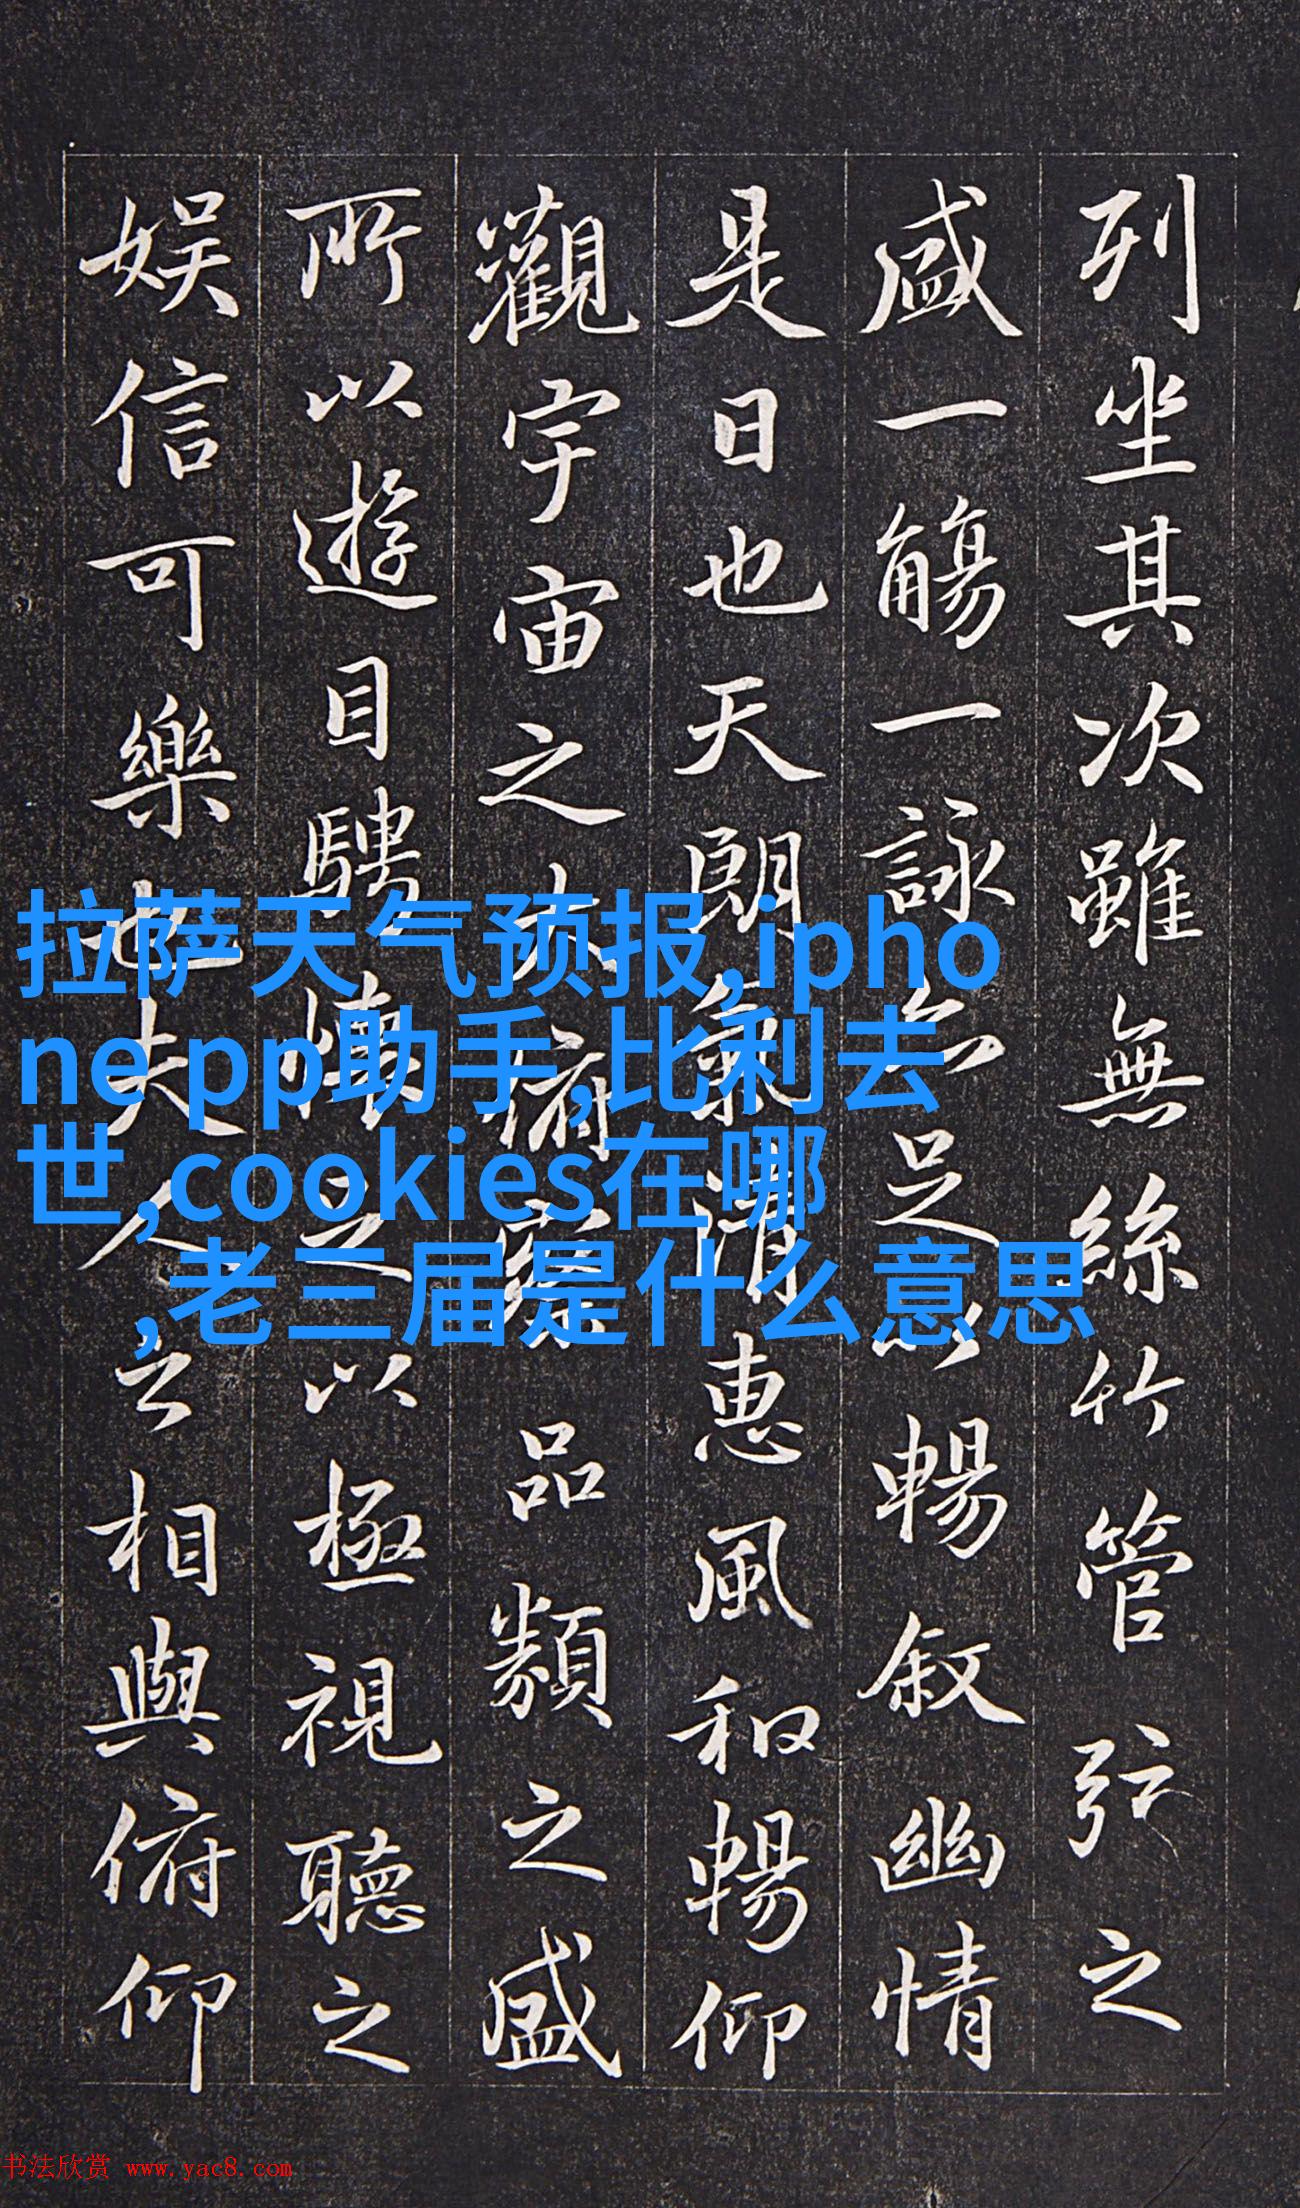 列坐其次雖無絲竹管弦之
盛一觴一詠足暢敘幽情
是日也天朗氣清惠風和暢仰
觀宇宙之大俯察品類之盛
所以遊目騁懷之以極視聽之
娛信可樂也夫人之相與俯仰
拉萨天气预报,ipho
ne pp助手,比利去
世,cookies在哪
,老三届是什么意思
书法欣赏 www.yac8.com